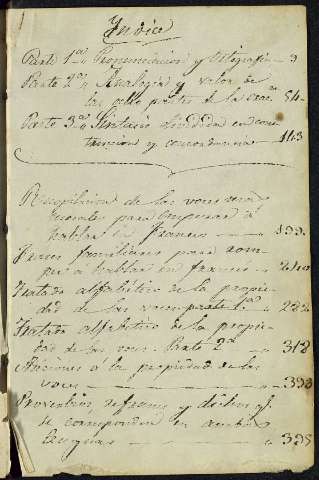 Indice
Parte 1ª " Pronunciacion y Ortografia - 9
Parte 2ª " Analogia y valor de
las ocho partes de la orac.n 54.
Parte 3ª " Sintacis dividida en cons
truccion y concordancia 143
Recopilacion de las voces mas
usuales para empezar á
hablar en Frances 199.
Frases familiares para rom
per á hablar en frances 240
Tratado alfabético de la propie
dad de las voces parte 1ª 282
Tratado alfabetico de la propie
dad de las voces Parte 2ª 318
Adiciones á la propiedad de las
voces 393
Proverbios, refranes y dichos q.
se corresponden en ambas
lenguas 395